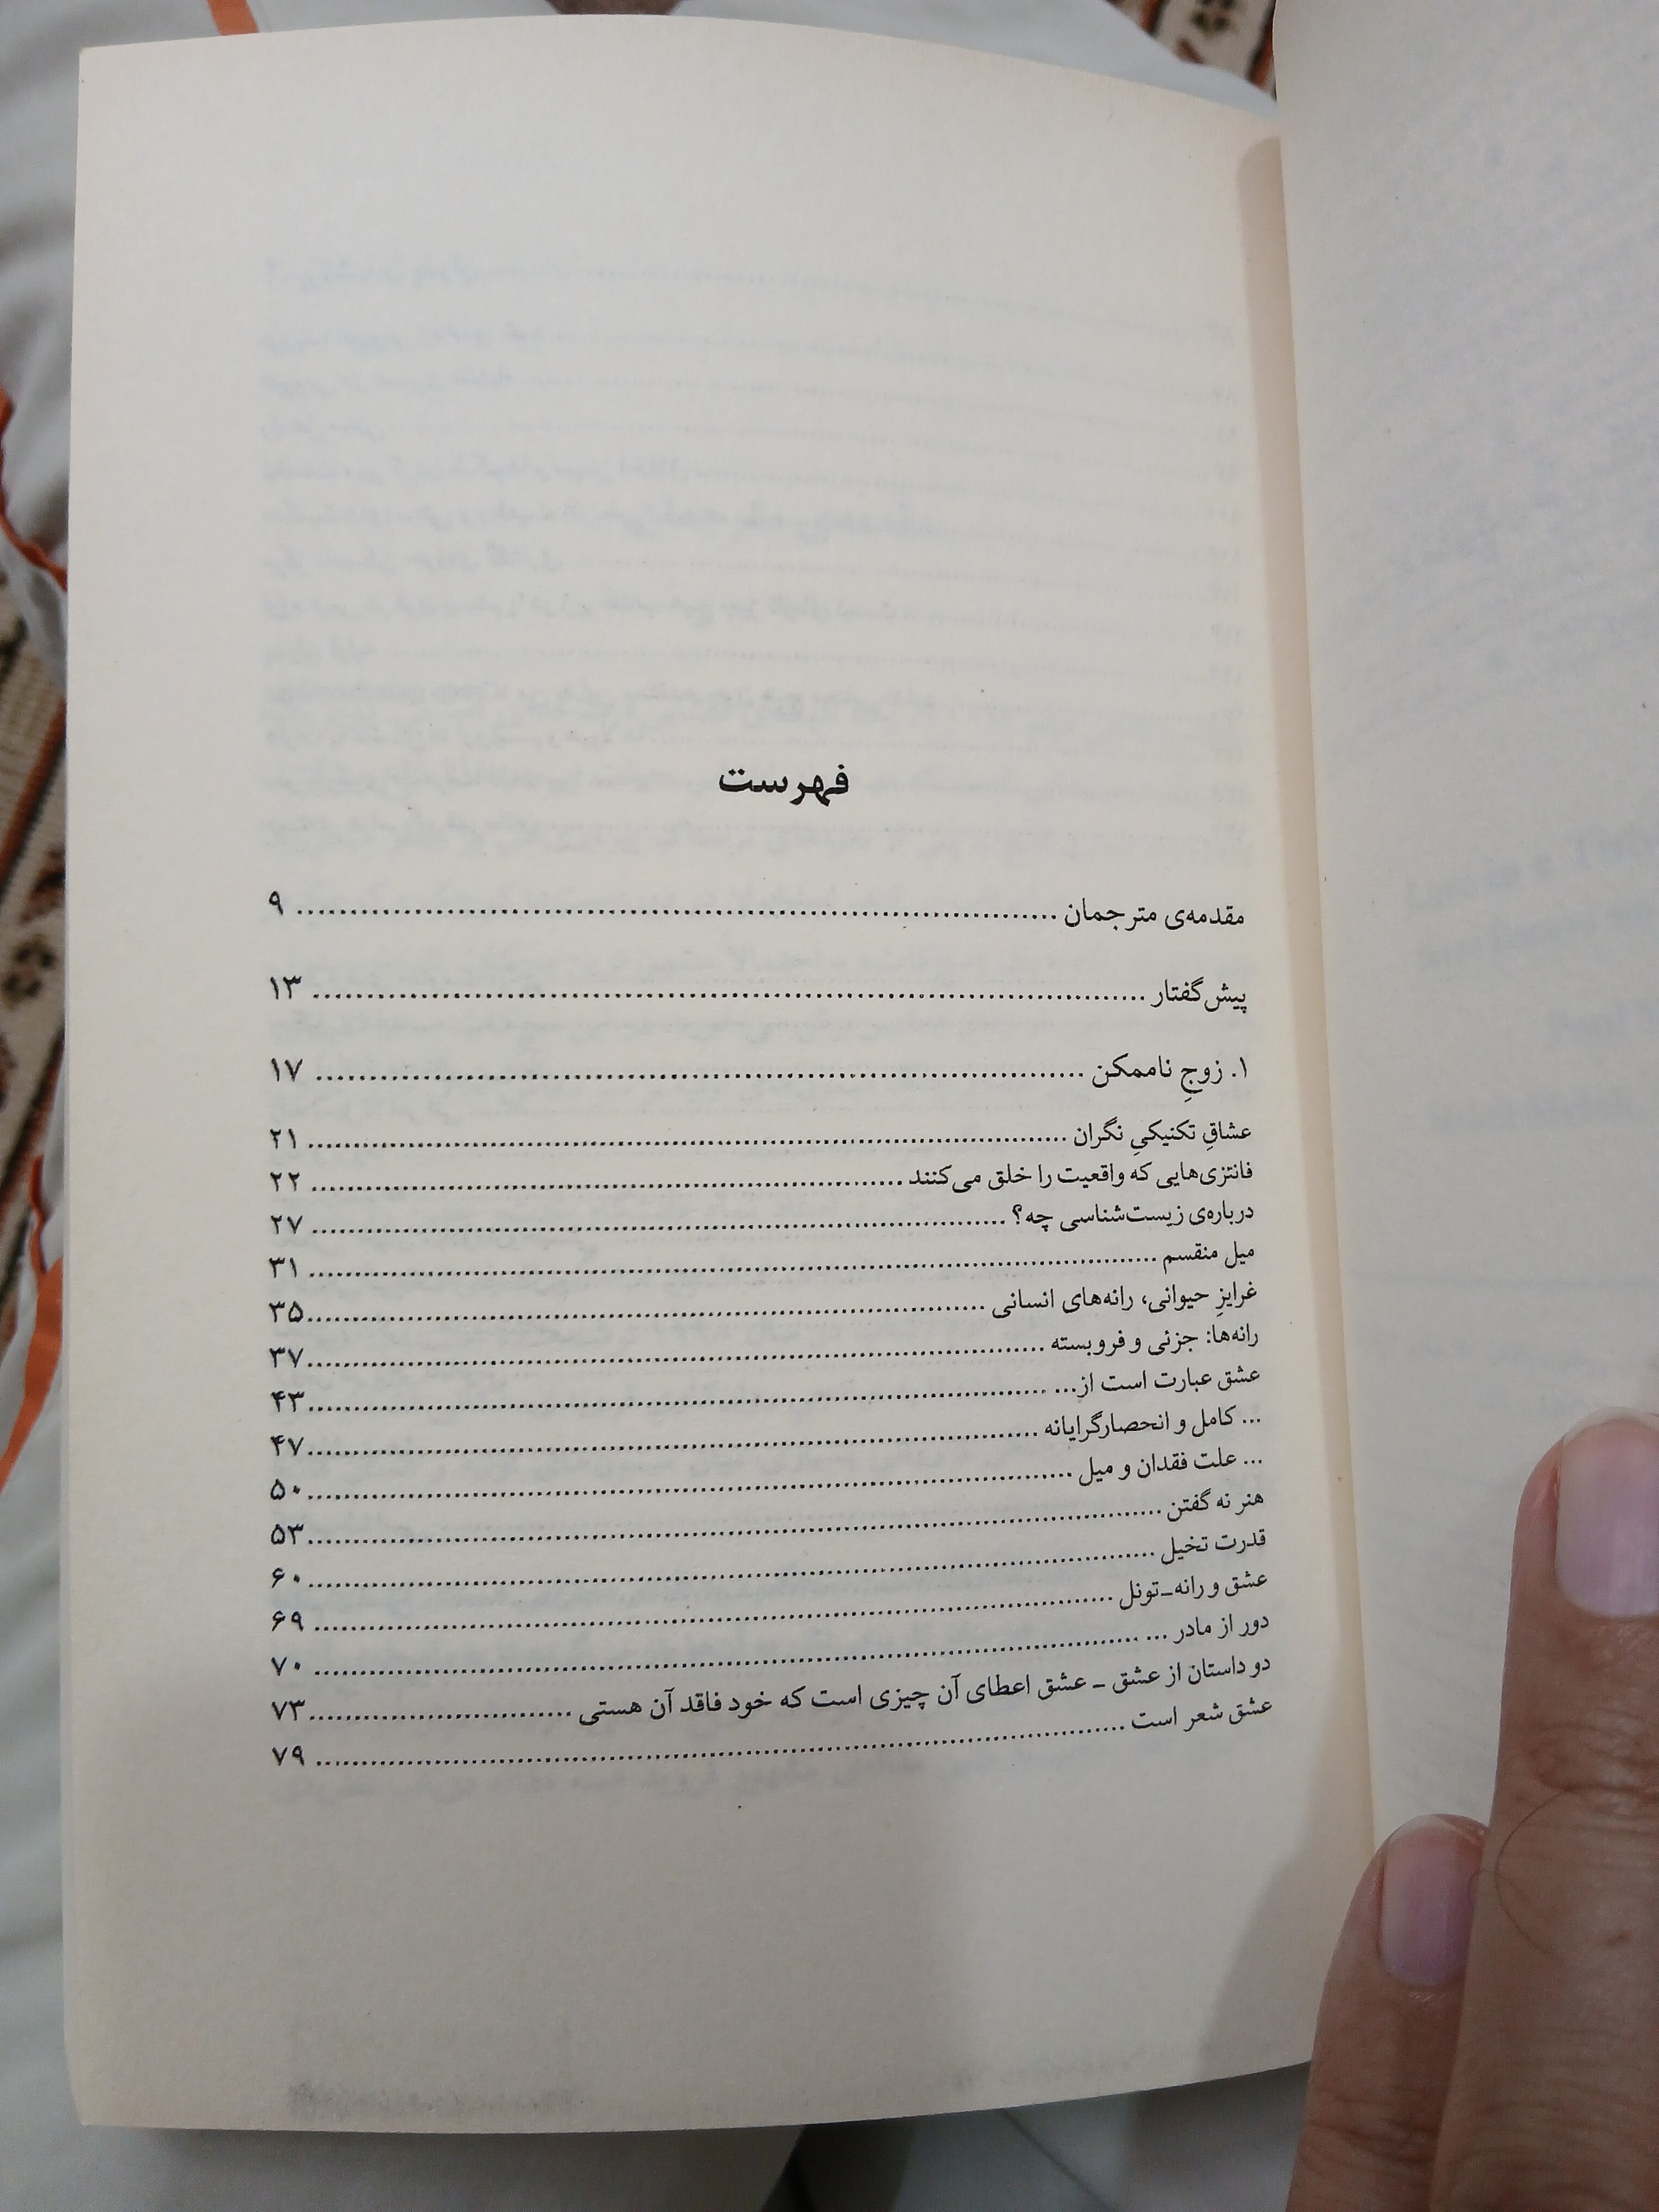 فهرست
مقدمه‌ی مترجمان ........ ۹
پیش‌گفتار ........ ۱۳
۱. زوجِ ناممکن ........ ۱۷
عشاقِ تکنیکیِ نگران ........ ۲۱
فانتزی‌هایی که واقعیت را خلق می‌کنند ........ ۲۲
درباره‌ی زیست‌شناسی چه؟ ........ ۲۷
میل منقسم ........ ۳۱
غرایزِ حیوانی، رانه‌های انسانی ........ ۳۵
رانه‌ها: جزئی و فروبسته ........ ۳۷
عشق عبارت است از... ........ ۴۳
... کامل و انحصارگرایانه ........ ۴۷
... علت فقدان و میل ........ ۵۰
هنر نه گفتن ........ ۵۳
قدرت تخیل ........ ۶۰
عشق و رانه–تونل ........ ۶۹
دور از مادر ... ........ ۷۰
دو داستان از عشق – عشق اعطای آن چیزی است که خود فاقد آن هستی ........ ۷۳
عشق شعر است ........ ۷۹